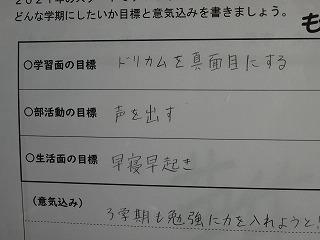 どんな学期にしたいか目標と意気込みを書きましょう。
○学習面の目標 ドリカムを真面目にする
○部活動の目標 声を出す
○生活面の目標 早寝早起き
(意気込み)
3学期も勉強に力を入れようと